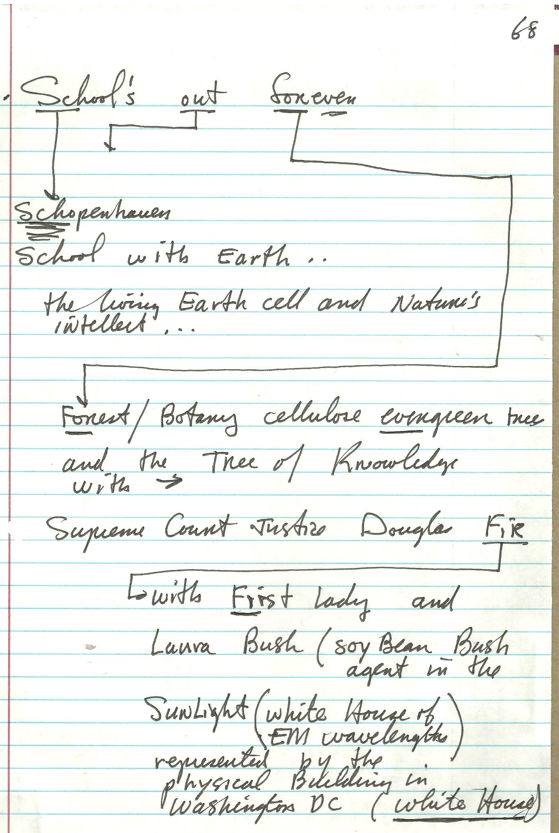 68
School's out forever
Schopenhauer
School with Earth ..
the living Earth cell and Nature's
intellect ...
Forest / Botany cellulose evergreen tree
and the Tree of Knowledge
with →
Supreme Court Justice Douglas Fir
with First Lady and
Laura Bush (soy Bean Bush
agent in the
SunLight (white House of
EM wavelengths)
represented by the
physical Building in
Washington DC (white House)